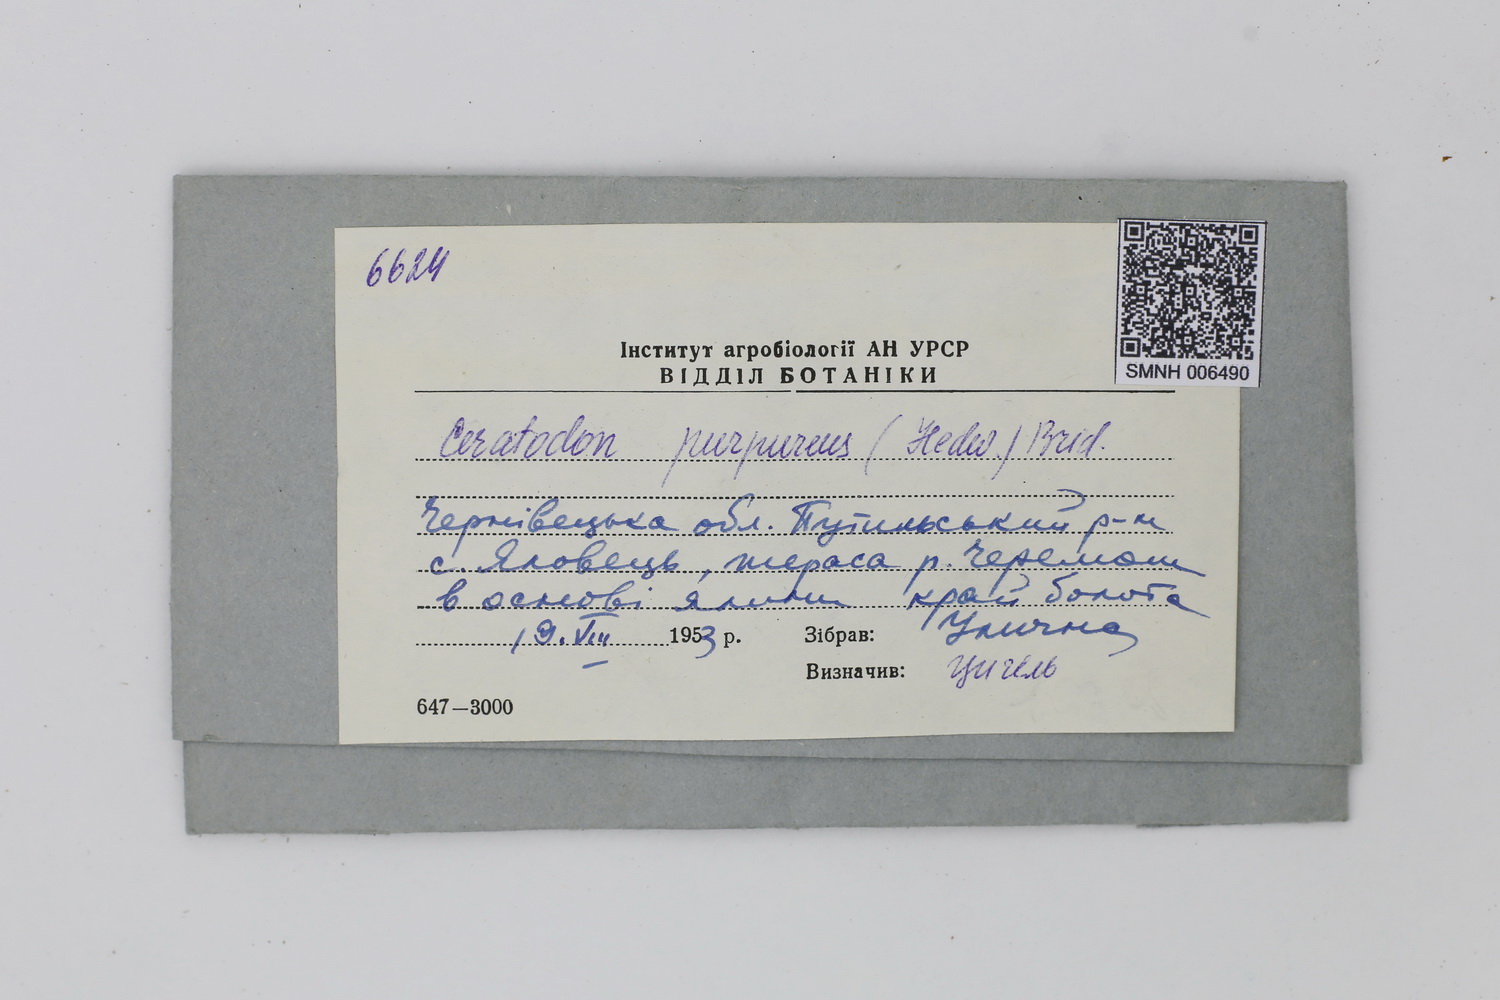 6624
SMNH 006490
Інститут агробіології АН УРСР
ВІДДІЛ БОТАНІКИ
Ceratodon purpureus (Hedw.) Brid.
Чернівецька обл. Путильський р-н
с. Яловець, тераса р. Черемош
в основі ялини край болота
19.VIII 1953 р. Зібрав: Улична
Визначив:
647—3000